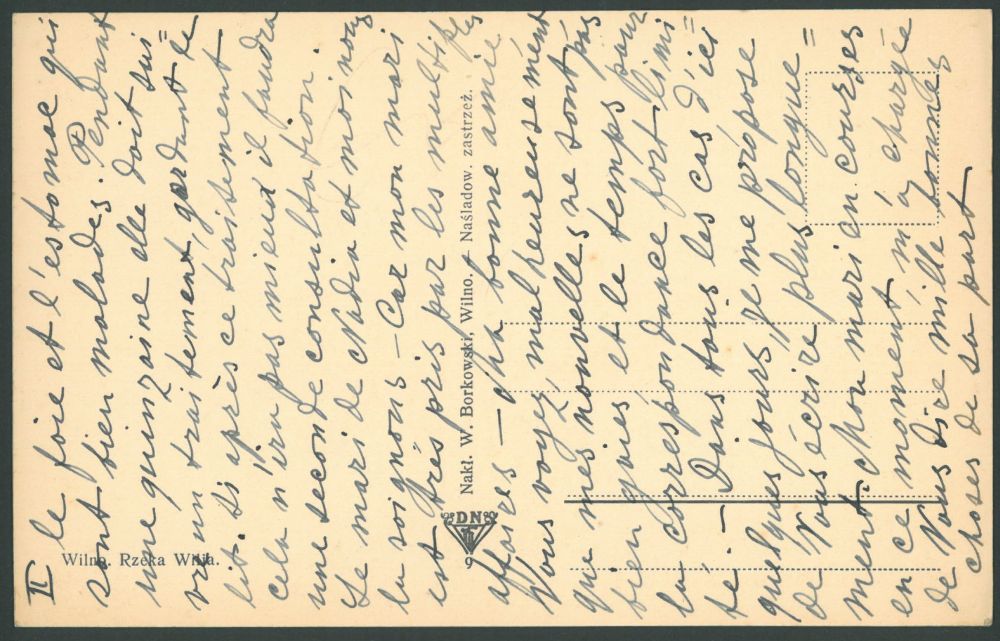 II le foie et l'estomac qui
sont bien malades. Pendant
une quinzaine elle doit sui=
vre un traitement, gardant le
lit. Si après ce traitement
cela n'ira pas mieux il faudra
une seconde consultation.
Le mari de Nadia et moi nous
la soignons — Car mon mari
est très pris par les multiples
affaires — Ma bonne amie
Vous voyez malheureusement
que mes nouvelles ne sont pas
bien gaies et le temps pour
la correspondance fort limi=
té. — Dans tous les cas d'ici
quelques jours je me propose
de Vous écrire plus longue=
ment. Mon mari en courses
en ce moment m'a chargée
de Vous dire mille bonnes
choses de sa part
Wilno. Rzeka Wilja.
DN
9
Nakł. W. Borkowski, Wilno. Naśladow. zastrzeż.